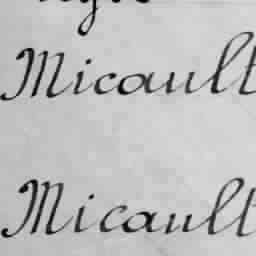 Micault
Micault